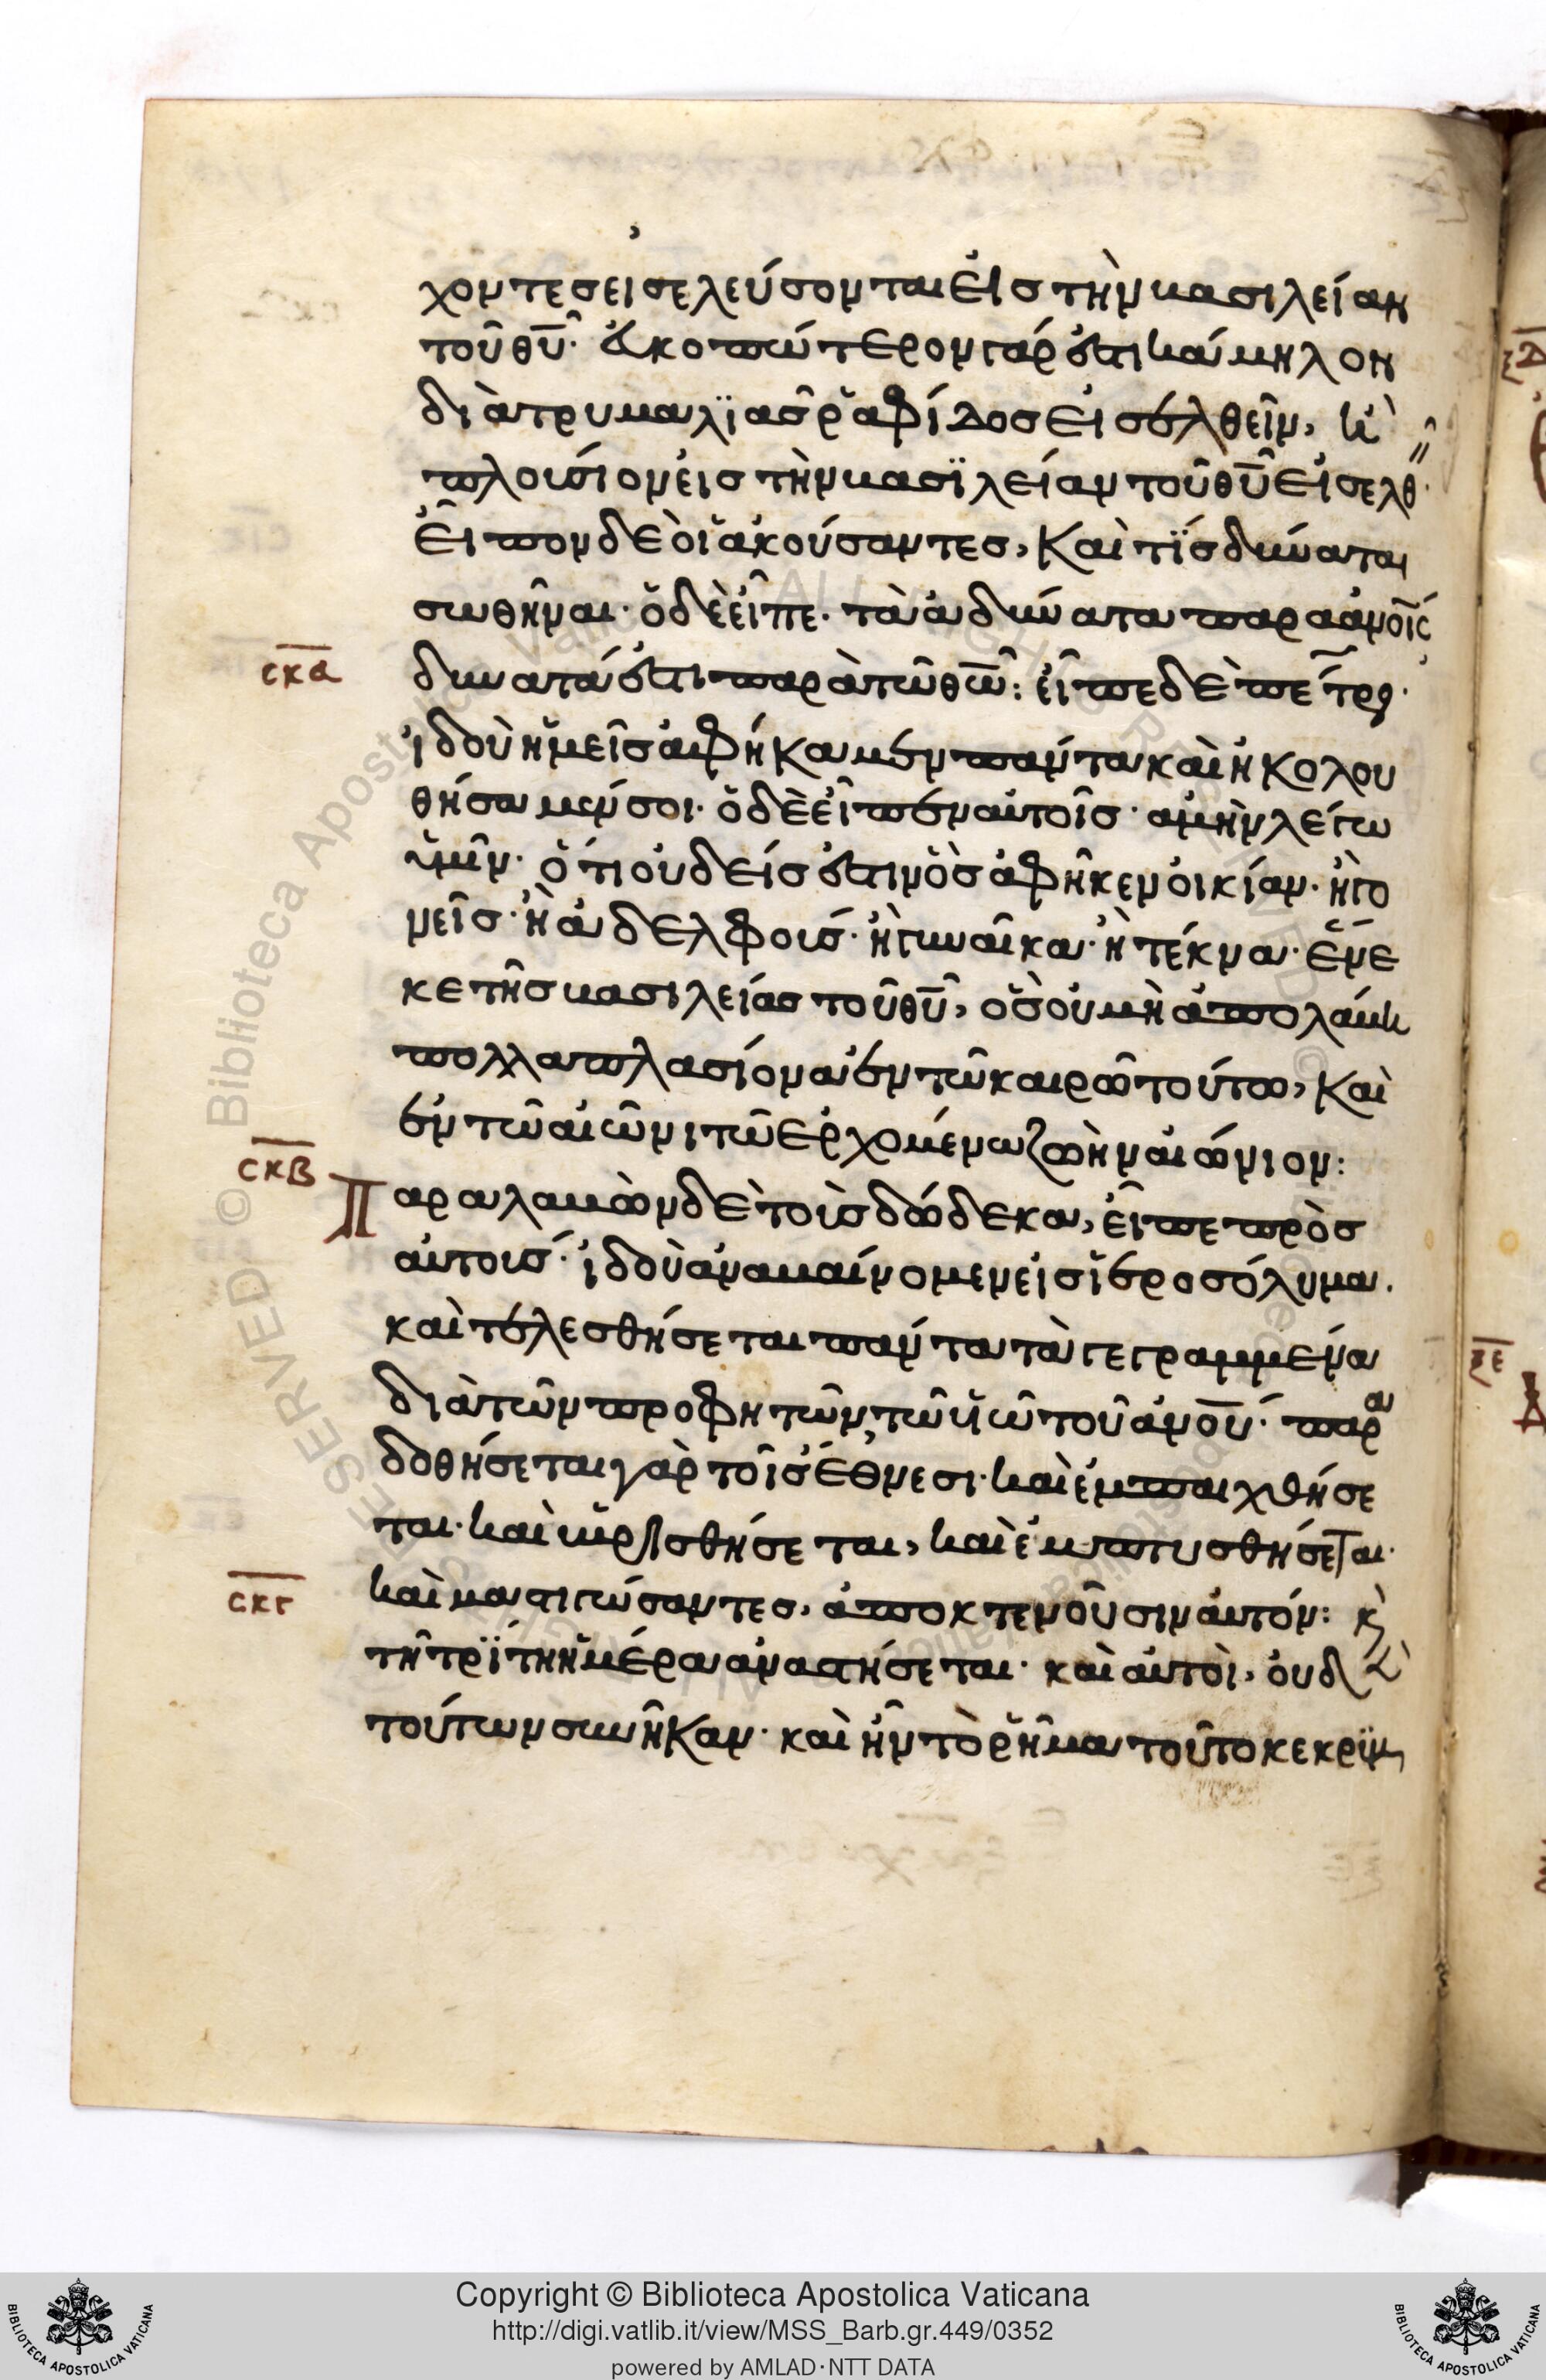 χοντες εἰσελεύσονται εἰς τὴν βασιλείαν
τοῦ θυ̅· ἐυκοπώτερον γάρ ἐστι κάμηλον
διὰ τρυμαλϊᾶς ῥαφίδος εἰσελθεῖν, ἢ
πλούσιον εἰς τὴν βασϊλείαν τοῦ θυ̅ εἰσελθ·
εἶπον δὲ οἱ ἀκούσαντες, καὶ τίς δύναται
σωθῆναι· ὁ δὲ εἶπε· τὰ ἀδύνατα παρὰ ἀνοις
σκα
δυνατά ἐστι παρὰ τῶ θω̅: εἶπε δὲ πέτρο·
ἰδοὺ ἡμεῖς ἀφήκαμεν πάντα καὶ ἠκολου
θήσαμέν σοι· ὁ δὲ εἶπεν αὐτοῖς· ἀμὴν λέγω
ὑμῖν· ὅτι οὐδείς ἐστιν ὃς ἀφῆκεν οἰκίαν· ἢ γο
νεῖς· ἢ ἀδελφούς· ἢ γυναῖκα· ἢ τέκνα· ἕνε
κε τῆς βασιλείας τοῦ θυ̅, ὃς οὐ μὴ ἀπολάβη
πολλαπλασίονα ἐν τῶ καιρῶ τούτω, καὶ
ἐν τῶ αἰῶνι τῶ ἐρχομένω ζωὴν αἰώνιον:
σκβ
Παραλαβὼν δὲ τοὺς δώδεκα, εἶπε πρὸς
αὐτούς· ἰδοὺ ἀναβαίνομεν εἰς ἱεροσόλυμα.
καὶ τελεσθήσεται πάντα τὰ γεγραμμένα
διὰ τῶν προφητῶν, τῶ υἱῶ τοῦ ἀνου̅· παρα
δοθήσεται γὰρ τοῖς ἔθνεσι· καὶ ἐμπαιχθήσε
ται· καὶ ὑβρισθήσεται, καὶ ἐμπτυσθήσεται·
σκγ
καὶ μαστιγώσαντες, ἀποκτενοῦσιν αὐτόν: κὶ
τῆ τρίτη ἡμέρα ἀναστήσεται· καὶ αὐτοὶ, οὐδὲν
τούτων συνῆκαν· καὶ ἦν τὸ ῥῆμα τοῦτο κεκρϋμ
Copyright © Biblioteca Apostolica Vaticana
http://digi.vatlib.it/view/MSS_Barb.gr.449/0352
powered by AMLAD·NTT DATA